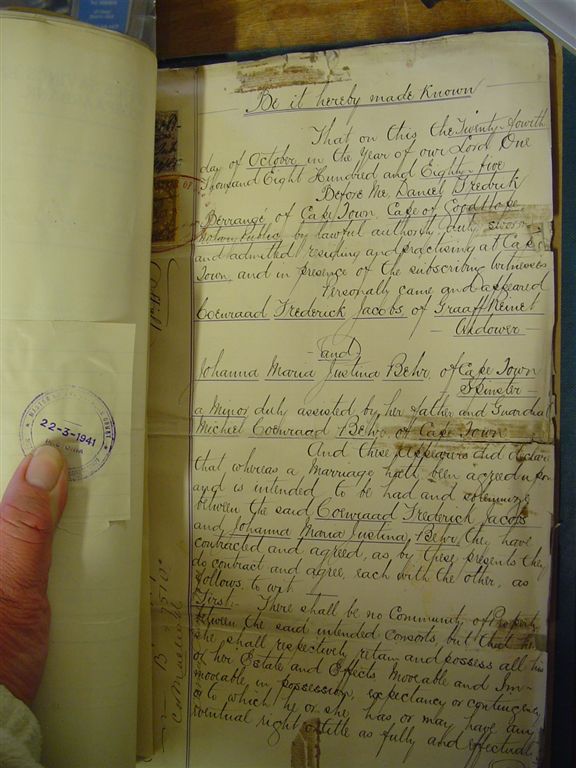 Be it hereby made known
That on this the Twenty fourth
day of October in the Year of our Lord One
Thousand Eight Hundred and Eighty five
Before Me, Daniel Fredrick
Berrangé of Cape Town, Cape of Good Hope
Notary Public by lawful authority duly sworn
and admitted residing and practising at Cape
Town, and in presence of the subscribing Witnesses
Personally came and appeared
Coenraad Frederick Jacobs of Graaff Reinet
Widower
and
Johanna Maria Justina Behr, of Cape Town
Spinster
a Minor duly assisted by her father and Guardian
Michiel Coenraad Behr of Cape Town
And these Appearers did declare
that whereas a Marriage hath been agreed upon
and is intended to be had and solemnize
between the said Coenraad Frederick Jacobs
and Johanna Maria Justina Behr, they have
contracted and agreed, as by these presents they
do contract and agree, each with the other, as
follows, to wit
First:- There shall be no Community of Property
between the said intended consorts, but that he
she shall respectively retain and possess all his
or her Estate and Effects, Moveable and Im-
moveable, in possession, expectancy or contingency
or to which he or she, has, or may have any
eventual right or title as fully and effectual
22-3-1941